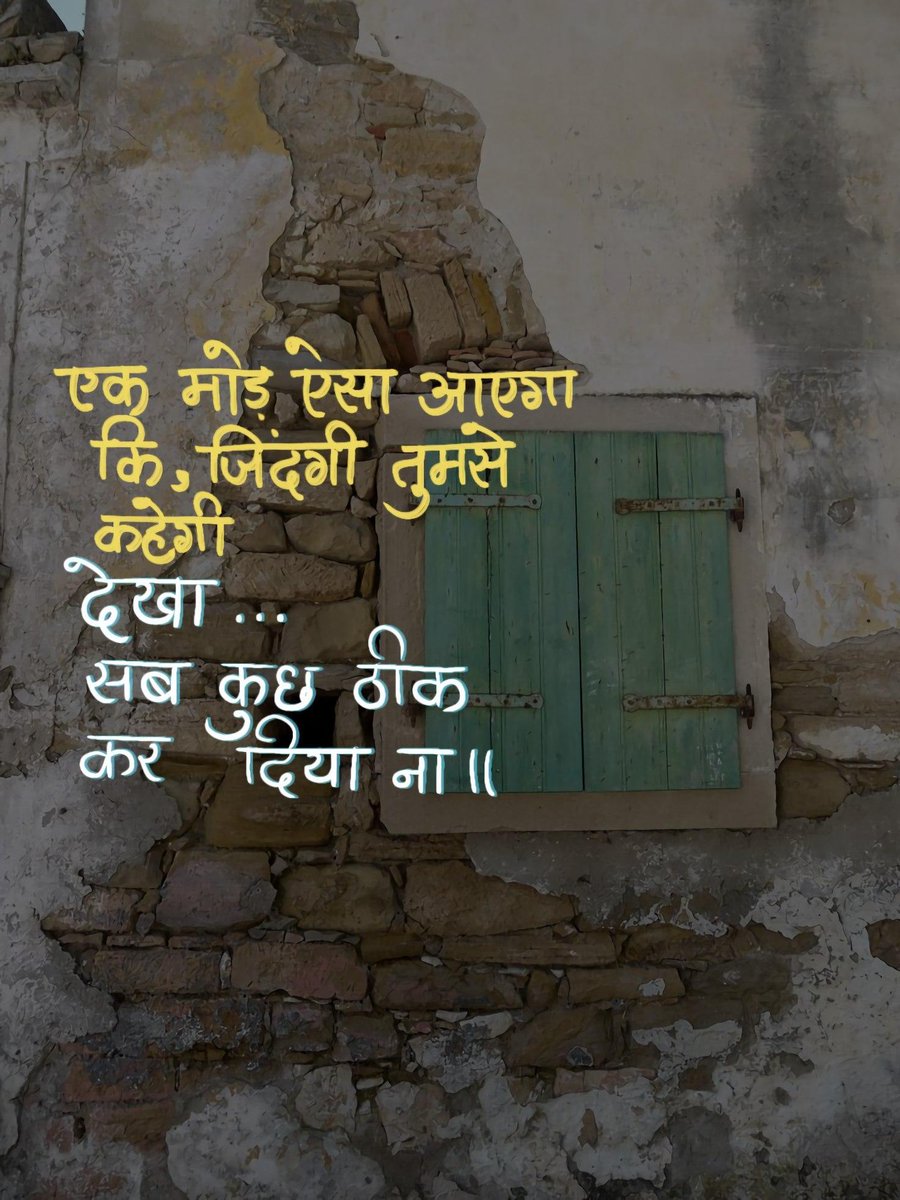 एक मोड़ ऐसा आएगा
कि, जिंदगी तुमसे
कहेगी
देखा ...
सब कुछ ठीक
कर दिया ना॥